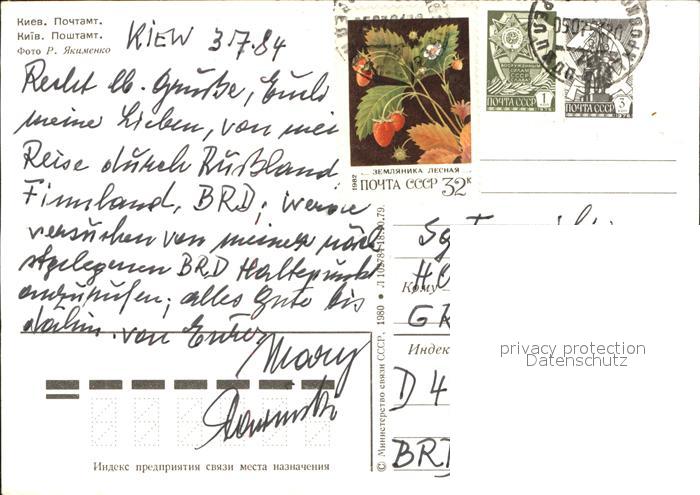 Киев. Почтамт.
Київ. Поштамт.
Фото Р. Якименко
KIEW 3.7.84
Recht lb. Grüße, Euch
meine Lieben, von mei
Reise durch Rußland
Finnland, BRD; werde
versuchen von meiner näch
stgelegenen BRD Haltepunkt
anzurufen; alles Gute bis
dahin. von Eurer
Mary
Индекс предприятия связи места назначения
© Министерство связи СССР. 1980
1982
ЗЕМЛЯНИКА ЛЕСНАЯ
ПОЧТА СССР 32к
ВООРУЖЕННЫЕ
СИЛЫ
СССР
ПОЧТА СССР 1
ПОЧТА СССР 3
1976
Кому
HO
GR
Индек
D 4
BRD
privacy protection
Datenschutz